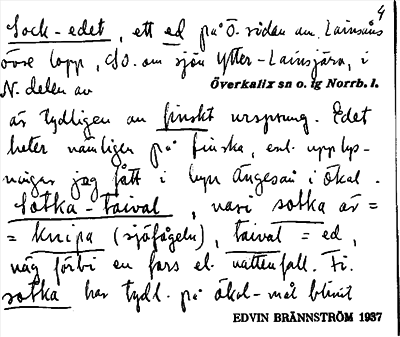 4
Sock-edet, ett ed på Ö. sidan av Lainiåns
övre lopp, SO. om sjön Ytter-Lainsjärv, i
N. delen av Överkalix sn o. tg Norrb. l.
är tydligen av finskt ursprung. Edet
heter nämligen på finska, enl. upplys-
ningar jag fått i byn Ängeså i Ökal.
Sotka-taival, vari sotka är =
= knipa (sjöfågeln), taival = ed,
väg förbi en fors el. vattenfall. Fi.
sotka har tydl. på Ökal-mål blivit
EDVIN BRÄNNSTRÖM 1937